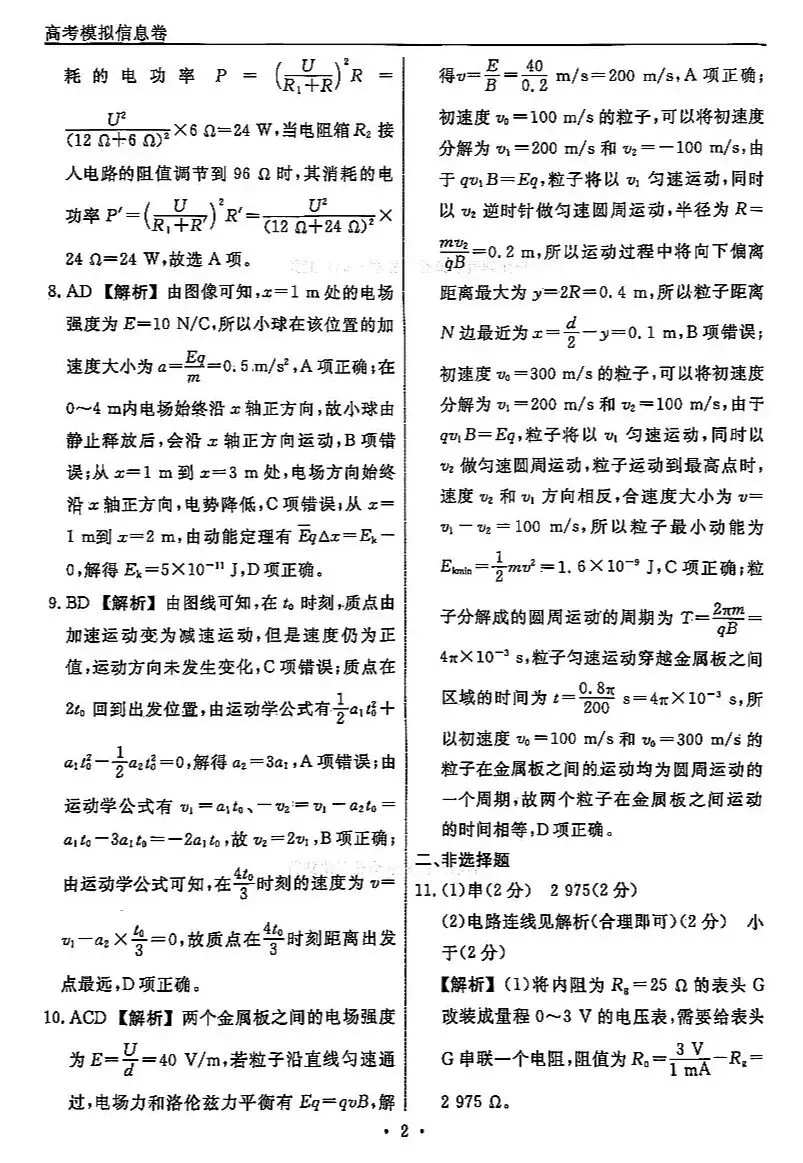 高考模拟信息卷
耗的电功率 P = (U/(R₁+R))²R =
U²/(12 Ω+6 Ω)²×6 Ω=24 W,当电阻箱R₂接
人电路的阻值调节到 96 Ω 时,其消耗的电
功率 P′=(U/(R₁+R′))²R′=U²/(12 Ω+24 Ω)²×
24 Ω=24 W,故选 A 项。
8. AD 【解析】由图像可知,x=1 m 处的电场
强度为 E=10 N/C,所以小球在该位置的加
速度大小为 a=Eq/m=0.5 m/s²,A 项正确;在
0~4 m内电场始终沿 x 轴正方向,故小球由
静止释放后,会沿 x 轴正方向运动,B 项错
误;从 x=1 m 到 x=3 m 处,电场方向始终
沿 x 轴正方向,电势降低,C 项错误;从 x=
1 m到 x=2 m,由动能定理有 E̅qΔx=Eₖ-
0,解得 Eₖ=5×10⁻¹¹ J,D 项正确。
9. BD 【解析】由图线可知,在 t₀ 时刻,质点由
加速运动变为减速运动,但是速度仍为正
值,运动方向未发生变化,C 项错误;质点在
2t₀ 回到出发位置,由运动学公式有 1/2a₁t₀²+
a₁t₀²-1/2a₂t₀²=0,解得 a₂=3a₁,A 项错误;由
运动学公式有 v₁=a₁t₀、-v₂=v₁-a₂t₀=
a₁t₀-3a₁t₀=-2a₁t₀,故 v₂=2v₁,B 项正确;
由运动学公式可知,在 4t₀/3 时刻的速度为 v=
v₁-a₂×t₀/3=0,故质点在 4t₀/3 时刻距离出发
点最远,D 项正确。
10. ACD 【解析】两个金属板之间的电场强度
为 E=U/d=40 V/m,若粒子沿直线匀速通
过,电场力和洛伦兹力平衡有 Eq=qvB,解
得 v=E/B=40/0.2 m/s=200 m/s,A 项正确;
初速度 v₀=100 m/s 的粒子,可以将初速度
分解为 v₁=200 m/s 和 v₂=-100 m/s,由
于 qv₁B=Eq,粒子将以 v₁ 匀速运动,同时
以 v₂ 逆时针做匀速圆周运动,半径为 R=
mv₂/qB=0.2 m,所以运动过程中将向下偏离
距离最大为 y=2R=0.4 m,所以粒子距离
N 边最近为 x=d/2-y=0.1 m,B 项错误;
初速度 v₀=300 m/s 的粒子,可以将初速度
分解为 v₁=200 m/s 和 v₂=100 m/s,由于
qv₁B=Eq,粒子将以 v₁ 匀速运动,同时以
v₂ 做匀速圆周运动,粒子运动到最高点时,
速度 v₂ 和 v₁ 方向相反,合速度大小为 v=
v₁-v₂=100 m/s,所以粒子最小动能为
Eₖₘᵢₙ=1/2mv²=1.6×10⁻⁹ J,C 项正确;粒
子分解成的圆周运动的周期为 T=2πm/qB=
4π×10⁻³ s,粒子匀速运动穿越金属板之间
区域的时间为 t=0.8π/200 s=4π×10⁻³ s,所
以初速度 v₀=100 m/s 和 v₀=300 m/s 的
粒子在金属板之间的运动均为圆周运动的
一个周期,故两个粒子在金属板之间运动
的时间相等,D 项正确。
二、非选择题
11. (1)串(2分) 2 975(2分)
(2)电路连线见解析(合理即可)(2分) 小
于(2分)
【解析】(1)将内阻为 R_g=25 Ω 的表头 G
改装成量程 0~3 V 的电压表,需要给表头
G 串联一个电阻,阻值为 R₀=3 V/1 mA-R_g=
2 975 Ω。
• 2 •